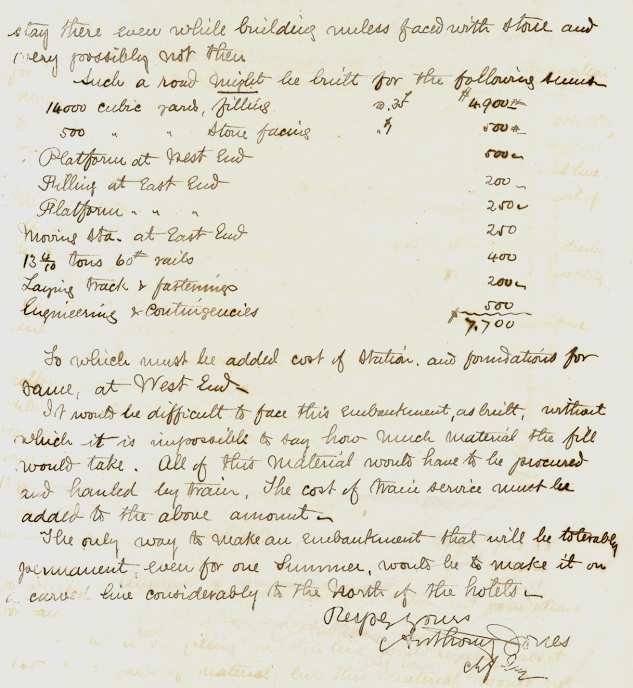 stay there even while building unless faced with stone and
very possibly not then
Such a road might be built for the following sums
14000 cubic yards, filling @ .35¢ $4.900
500 " " Stone facing " $1 500
Platform at West End 500
Filling at East End 200
Platform " " " 250
Moving Sta. at East End 250
13 4/10 tons 60lb rails 400
Laying track & fastenings 200
Engineering & Contingencies 500
$7,700
To which must be added cost of Station, and foundations for
same, at West End
It would be difficult to face this embankment, as built, without
which it is impossible to say how much material the fill
would take. All of this material would have to be procured
and hauled by train. The cost of train service must be
added to the above amount
The only way to make an embankment that will be tolerably
permanent even for one Summer, would be to make it on
a curved line considerably to the North of the hotels
Respy Yours
Anthony Jones